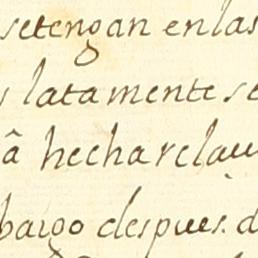 setengan enlas
latamente se
â hecharclau
bargo despues. d